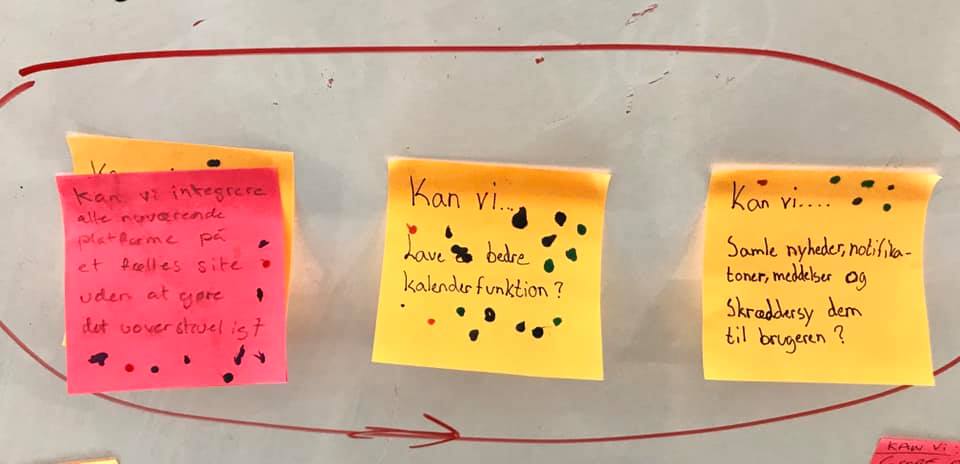 Kan vi integrere
alle nuværende
platforme på
et fælles site
uden at gøre
det uoverskueligt
Kan vi...
Lave bedre
kalenderfunktion?
Kan vi....
Samle nyheder, notifika-
tioner, meddelser og
Skræddersy dem
til brugeren?
KAN VI